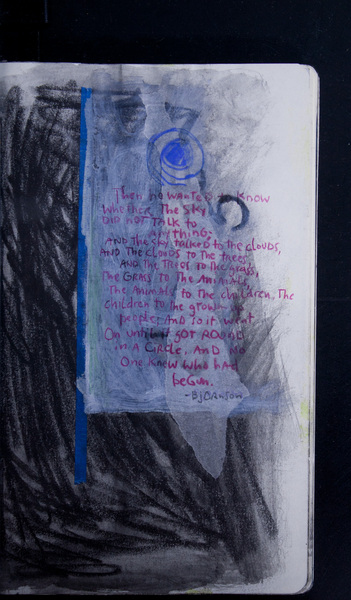 Then he wanted to know
whether The Sky
DID NOT TALK to
anything;
AND the sky talked to the clouds,
AND The clouds to the trees
AND The Trees to the grass,
The GRASS to The Animals
The Animals to the children. The
children to the grown
people; AND so it went
On until it GOT ROUND
in A Circle, AND no
One knew who had
begun.
-BJORNSON